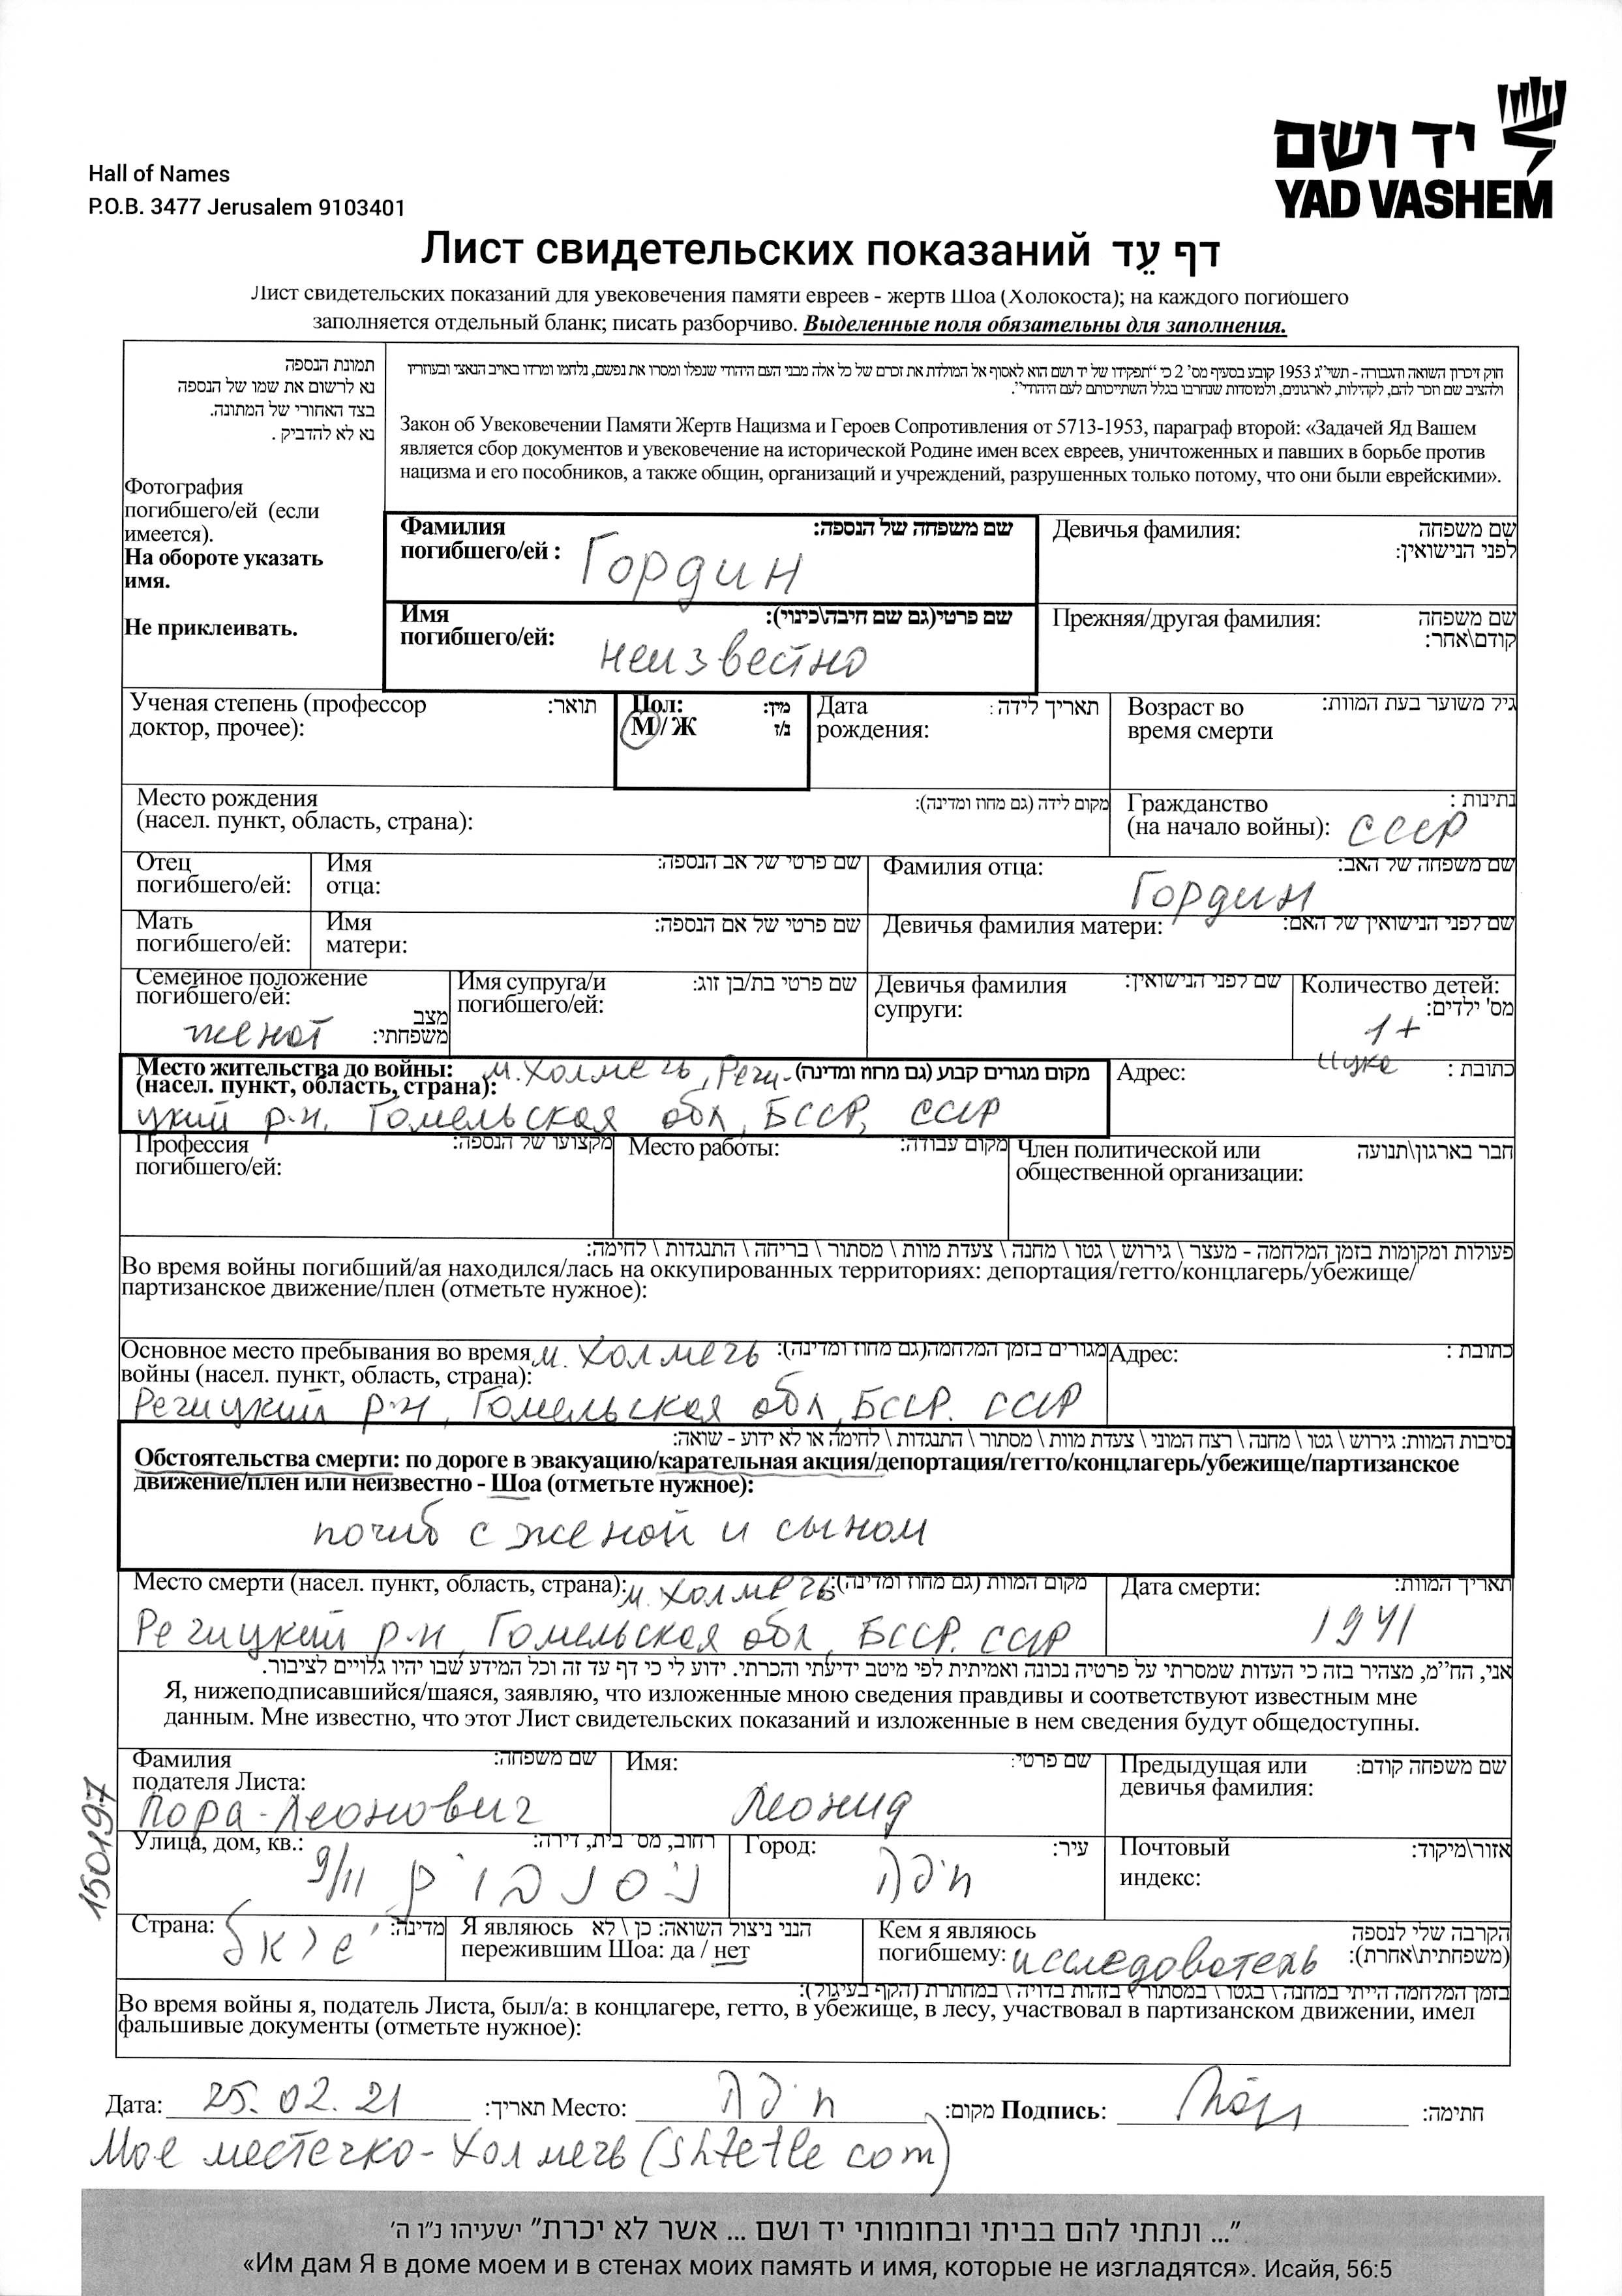 יד ושם
YAD VASHEM
Hall of Names
P.O.B. 3477 Jerusalem 9103401
Лист свидетельских показаний דף עֵד
Лист свидетельских показаний для увековечения памяти евреев - жертв Шоа (Холокоста); на каждого погибшего
заполняется отдельный бланк; писать разборчиво. Выделенные поля обязательны для заполнения.
תמונת הנספה
נא לרשום את שמו של הנספה
בצד האחורי של המתונה.
נא לא להדביק .
Фотография
погибшего/ей (если
имеется).
На обороте указать
имя.
Не приклеивать.
חוק זיכרון השואה והגבורה - תשי״ג 1953 קובע בסעיף מס׳ 2 כי ״תפקידו של יד ושם הוא לאסוף אל המולדת את זכרם של כל אלה מבני העם היהודי שנפלו ומסרו את נפשם, נלחמו ומרדו באויב הנאצי ובעוזריו
ולהציב שם וזכר להם, לקהילות, לארגונים, ולמוסדות שנחרבו בגלל השתייכותם לעם היהודי״.
Закон об Увековечении Памяти Жертв Нацизма и Героев Сопротивления от 5713-1953, параграф второй: «Задачей Яд Вашем
является сбор документов и увековечение на исторической Родине имен всех евреев, уничтоженных и павших в борьбе против
нацизма и его пособников, а также общин, организаций и учреждений, разрушенных только потому, что они были еврейскими».
Фамилия שם משפחה של הנספה:
погибшего/ей : Гордин
Девичья фамилия: שם משפחה
לפני הנישואין:
Имя שם פרטי(גם שם חיבה\כינוי):
погибшего/ей: неизвестно
Прежняя/другая фамилия: שם משפחה
קודם\אחר:
Ученая степень (профессор תואר:
доктор, прочее):
Пол: מין:
М / Ж נ/ז
Дата תאריך לידה :
рождения:
Возраст во גיל משוער בעת המוות:
время смерти
Место рождения מקום לידה (גם מחוז ומדינה):
(насел. пункт, область, страна):
Гражданство נתינות :
(на начало войны): СССР
Отец
погибшего/ей:
Имя שם פרטי של אב הנספה:
отца:
Фамилия отца: שם משפחה של האב:
Гордин
Мать
погибшего/ей:
Имя שם פרטי של אם הנספה:
матери:
Девичья фамилия матери: שם לפני הנישואין של האם:
Семейное положение
погибшего/ей: מצב
женат משפחתי:
Имя супруга/и שם פרטי בת/בן זוג:
погибшего/ей:
Девичья фамилия שם לפני הנישואין:
супруги:
Количество детей:
מס' ילדים:
1+
Место жительства до войны: м. Холмечь, Речи- מקום מגורים קבוע (גם מחוז ומדינה)
(насел. пункт, область, страна):
цкий р-н, Гомельская обл, БССР, СССР
Адрес: כתובת :
Профессия מקצועו של הנספה:
погибшего/ей:
Место работы: מקום עבודה:
Член политической или חבר בארגון\תנועה
общественной организации:
פעולות ומקומות בזמן המלחמה - מעצר \ גירוש \ גטו \ מחנה \ צעדת מוות \ מסתור \ בריחה \ התנגדות \ לחימה:
Во время войны погибший/ая находился/лась на оккупированных территориях: депортация/гетто/концлагерь/убежище/
партизанское движение/плен (отметьте нужное):
Основное место пребывания во время м. Холмечь מגורים בזמן המלחמה(גם מחוז ומדינה):
войны (насел. пункт, область, страна):
Речицкий р-н, Гомельская обл, БССР. СССР
Адрес: כתובת :
נסיבות המוות: גירוש \ גטו \ מחנה \ רצח המוני \ צעדת מוות \ מסתור \ התנגדות \ לחימה או לא ידוע - שואה:
Обстоятельства смерти: по дороге в эвакуацию/карательная акция/депортация/гетто/концлагерь/убежище/партизанское
движение/плен или неизвестно - Шоа (отметьте нужное):
погиб с женой и сыном
Место смерти (насел. пункт, область, страна): м. Холмечь מקום המוות (גם מחוז ומדינה):
Речицкий р-н, Гомельская обл, БССР. СССР
Дата смерти: תאריך המוות:
1941
אני, הח״מ, מצהיר בזה כי העדות שמסרתי על פרטיה נכונה ואמיתית לפי מיטב ידיעתי והכרתי. ידוע לי כי דף עד זה וכל המידע שבו יהיו גלויים לציבור.
Я, нижеподписавшийся/шаяся, заявляю, что изложенные мною сведения правдивы и соответствуют известным мне
данным. Мне известно, что этот Лист свидетельских показаний и изложенные в нем сведения будут общедоступны.
Фамилия שם משפחה:
подателя Листа:
Пора-Леонович
Имя: שם פרטי:
Леонид
Предыдущая или שם משפחה קודם:
девичья фамилия:
Улица, дом, кв.: רחוב, מס׳ בית, דירה:
9/11
Город: עיר:
חיפה
Почтовый אזור\מיקוד:
индекс:
Страна: מדינה:
ישראל
Я являюсь הנני ניצול השואה: כן \ לא
пережившим Шоа: да / нет
Кем я являюсь הקרבה שלי לנספה
погибшему: исследователь (משפחתית\אחרת):
בזמן המלחמה הייתי במחנה \ בגטו \ במסתור \ בזהות בדויה \ במחתרת (הקף בעיגול):
Во время войны я, податель Листа, был/а: в концлагере, гетто, в убежище, в лесу, участвовал в партизанском движении, имел
фальшивые документы (отметьте нужное):
150197
Дата: 25.02.21 תאריך: Место: חיפה מקום: Подпись: חתימה:
Мое местечко-Холмечь (shtetle com)
״... ונתתי להם בביתי ובחומותי יד ושם ... אשר לא יכרת״ ישעיהו נ״ו ה׳
«Им дам Я в доме моем и в стенах моих память и имя, которые не изгладятся». Исайя, 56:5